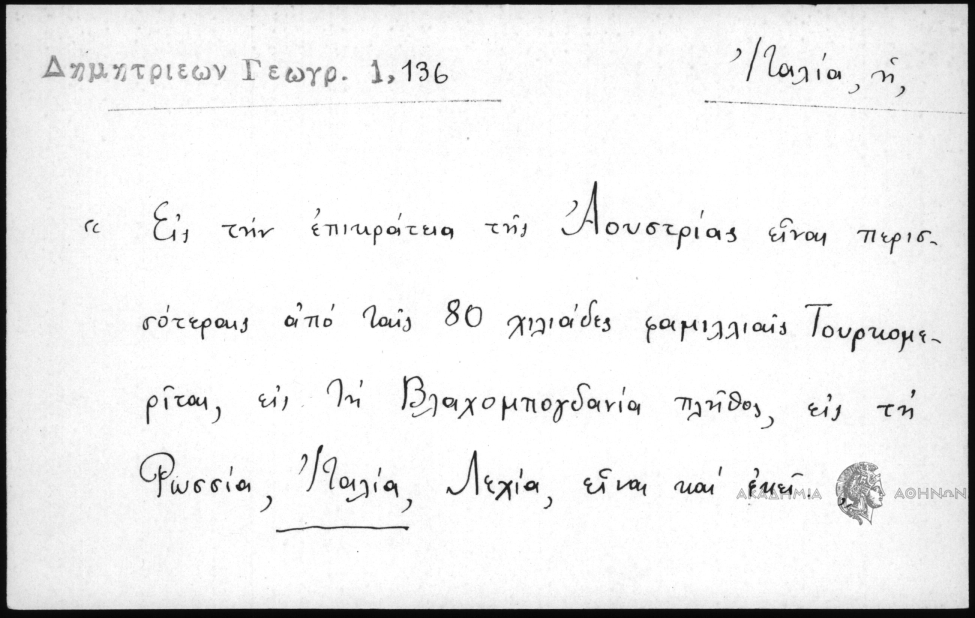 Δημητριεων Γεωγρ. 1, 136
Ἰταλία, ἡ,
« Εἰς τὴν ἐπικράτεια τῆς Ἀουστρίας εἶναι περισ-
σότεραις ἀπό ταῖς 80 χιλιάδες φαμιλλιαῖς Τουρκομε-
ρῖται, εἰς τὴ Βλαχομπογδανία πλῆθος, εἰς τὴ
Ρωσσία, Ἰταλία, Λεχία, εἶναι καὶ ἐκεῖ.
ΑΚΑΔΗΜΙΑ ΑΘΗΝΩΝ